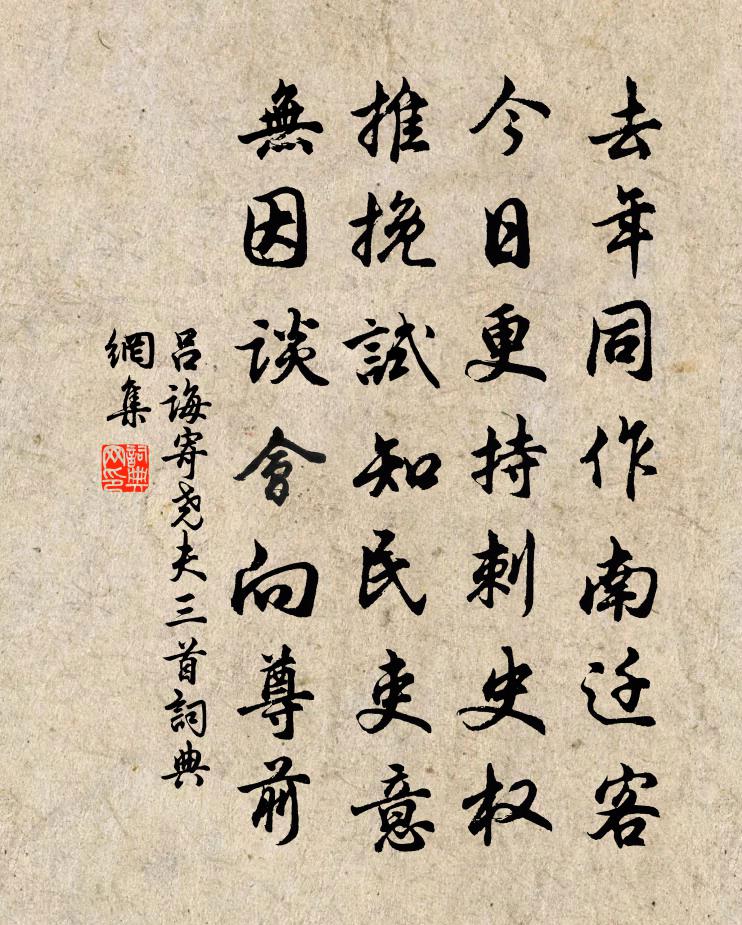 去年同作南迁客
今日更持刺史权
推挽試知民吏意
無因谈會向尊前
吕誨寄尧夫三首詞典
網集
詞典
网印